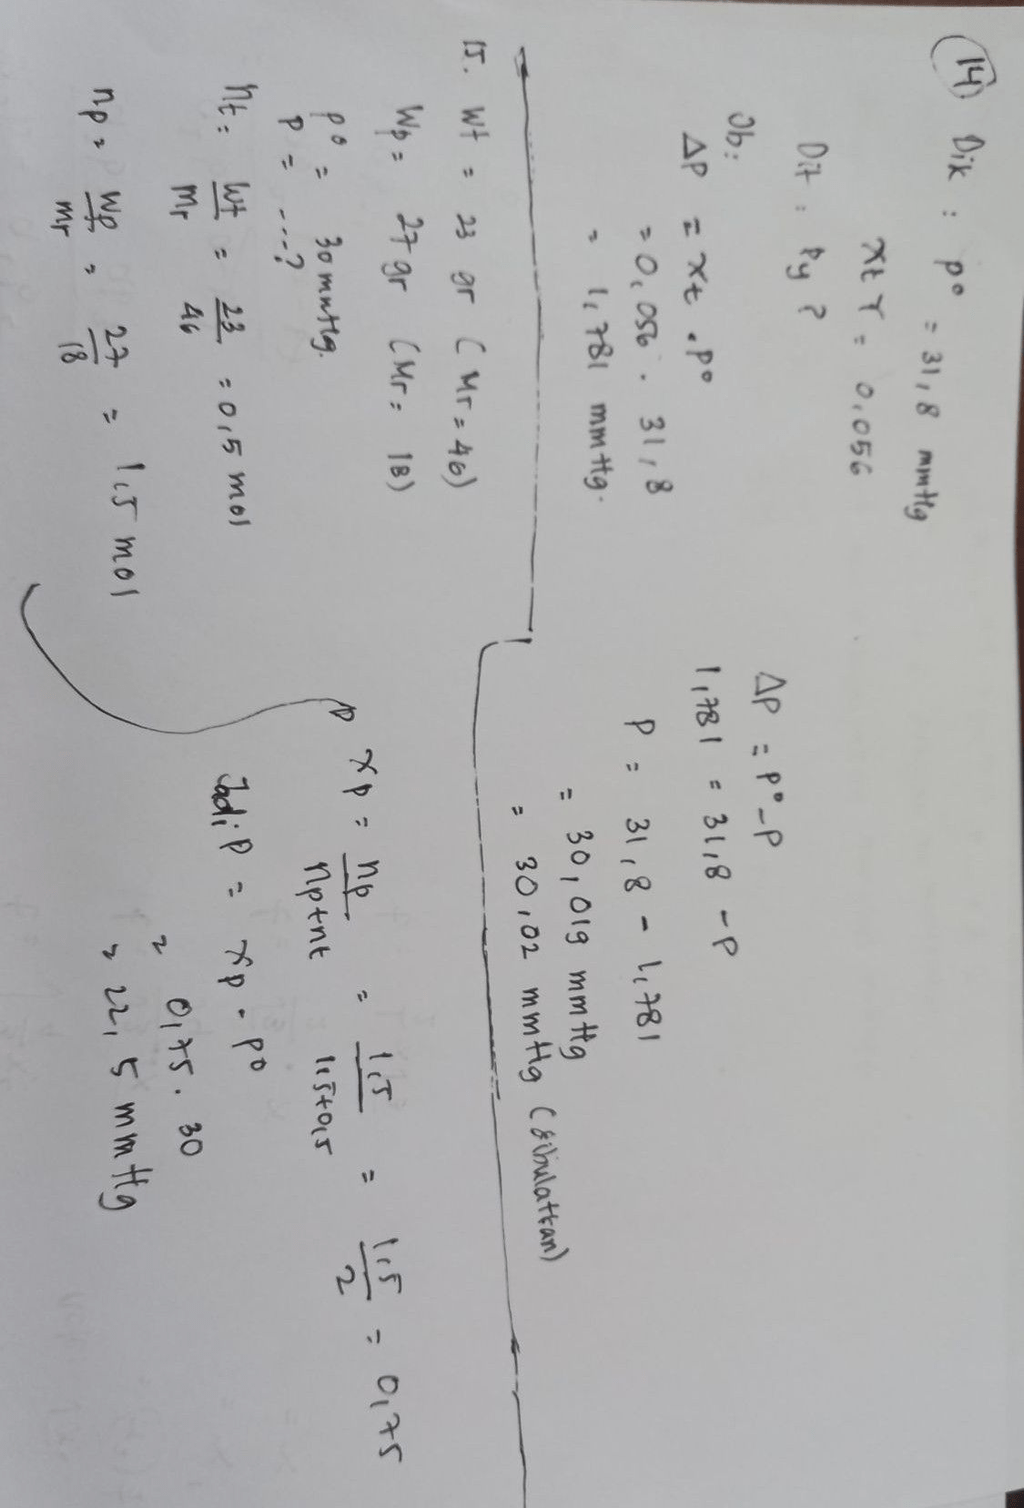 14) Dik : p° = 31,8 mmHg
xt Y = 0,056
Dit : Py ?
Jb:
ΔP = xt . p°
= 0,056 . 31,8
= 1,781 mmHg.
ΔP = p° - P
1,781 = 31,8 - P
P = 31,8 - 1,781
= 30,019 mmHg
= 30,02 mmHg (dibulatkan)
15. Wt = 23 gr (Mr = 46)
Wp = 27 gr (Mr = 18)
p° = 30 mmHg.
P = ....?
nt = Wt/Mr = 23/46 = 0,5 mol
np = Wp/Mr = 27/18 = 1,5 mol
xp = np/np+nt = 1,5/1,5+0,5 = 1,5/2 = 0,75
Jadi P = xp . p°
= 0,75 . 30
= 22,5 mmHg